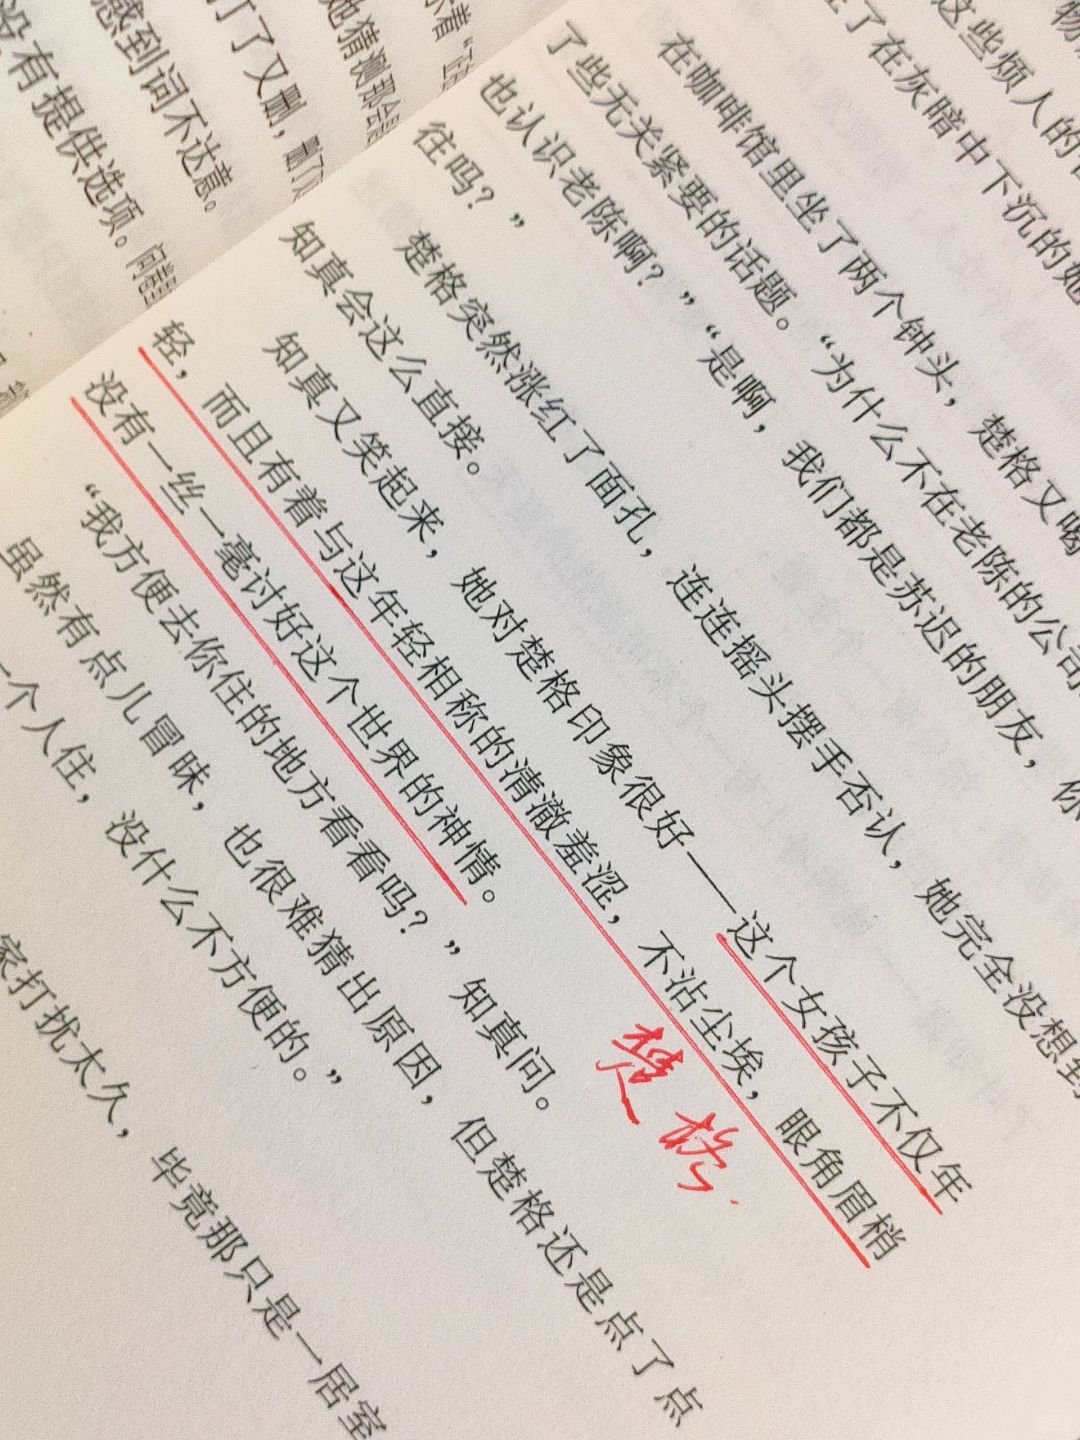 没有提供选项。
感到词不达意。
了又删，
她猜测那会是
这些烦人的
在灰暗中下沉的她
在咖啡馆里坐了两个钟头，楚格又喝
了些无关紧要的话题。“为什么不在老陈的公司
也认识老陈啊？”“是啊，我们都是苏迟的朋友，你
往吗？”
楚格突然涨红了面孔，连连摇头摆手否认，她完全没想到
知真会这么直接。
知真又笑起来，她对楚格印象很好——这个女孩子不仅年
轻，而且有着与这年轻相称的清澈羞涩，不沾尘埃，眼角眉梢
没有一丝一毫讨好这个世界的神情。
“我方便去你住的地方看看吗？”知真问。
虽然有点儿冒昧，也很难猜出原因，但楚格还是点了点
一个人住，没什么不方便的。”
家打扰太久，毕竟那只是一居室
楚格.